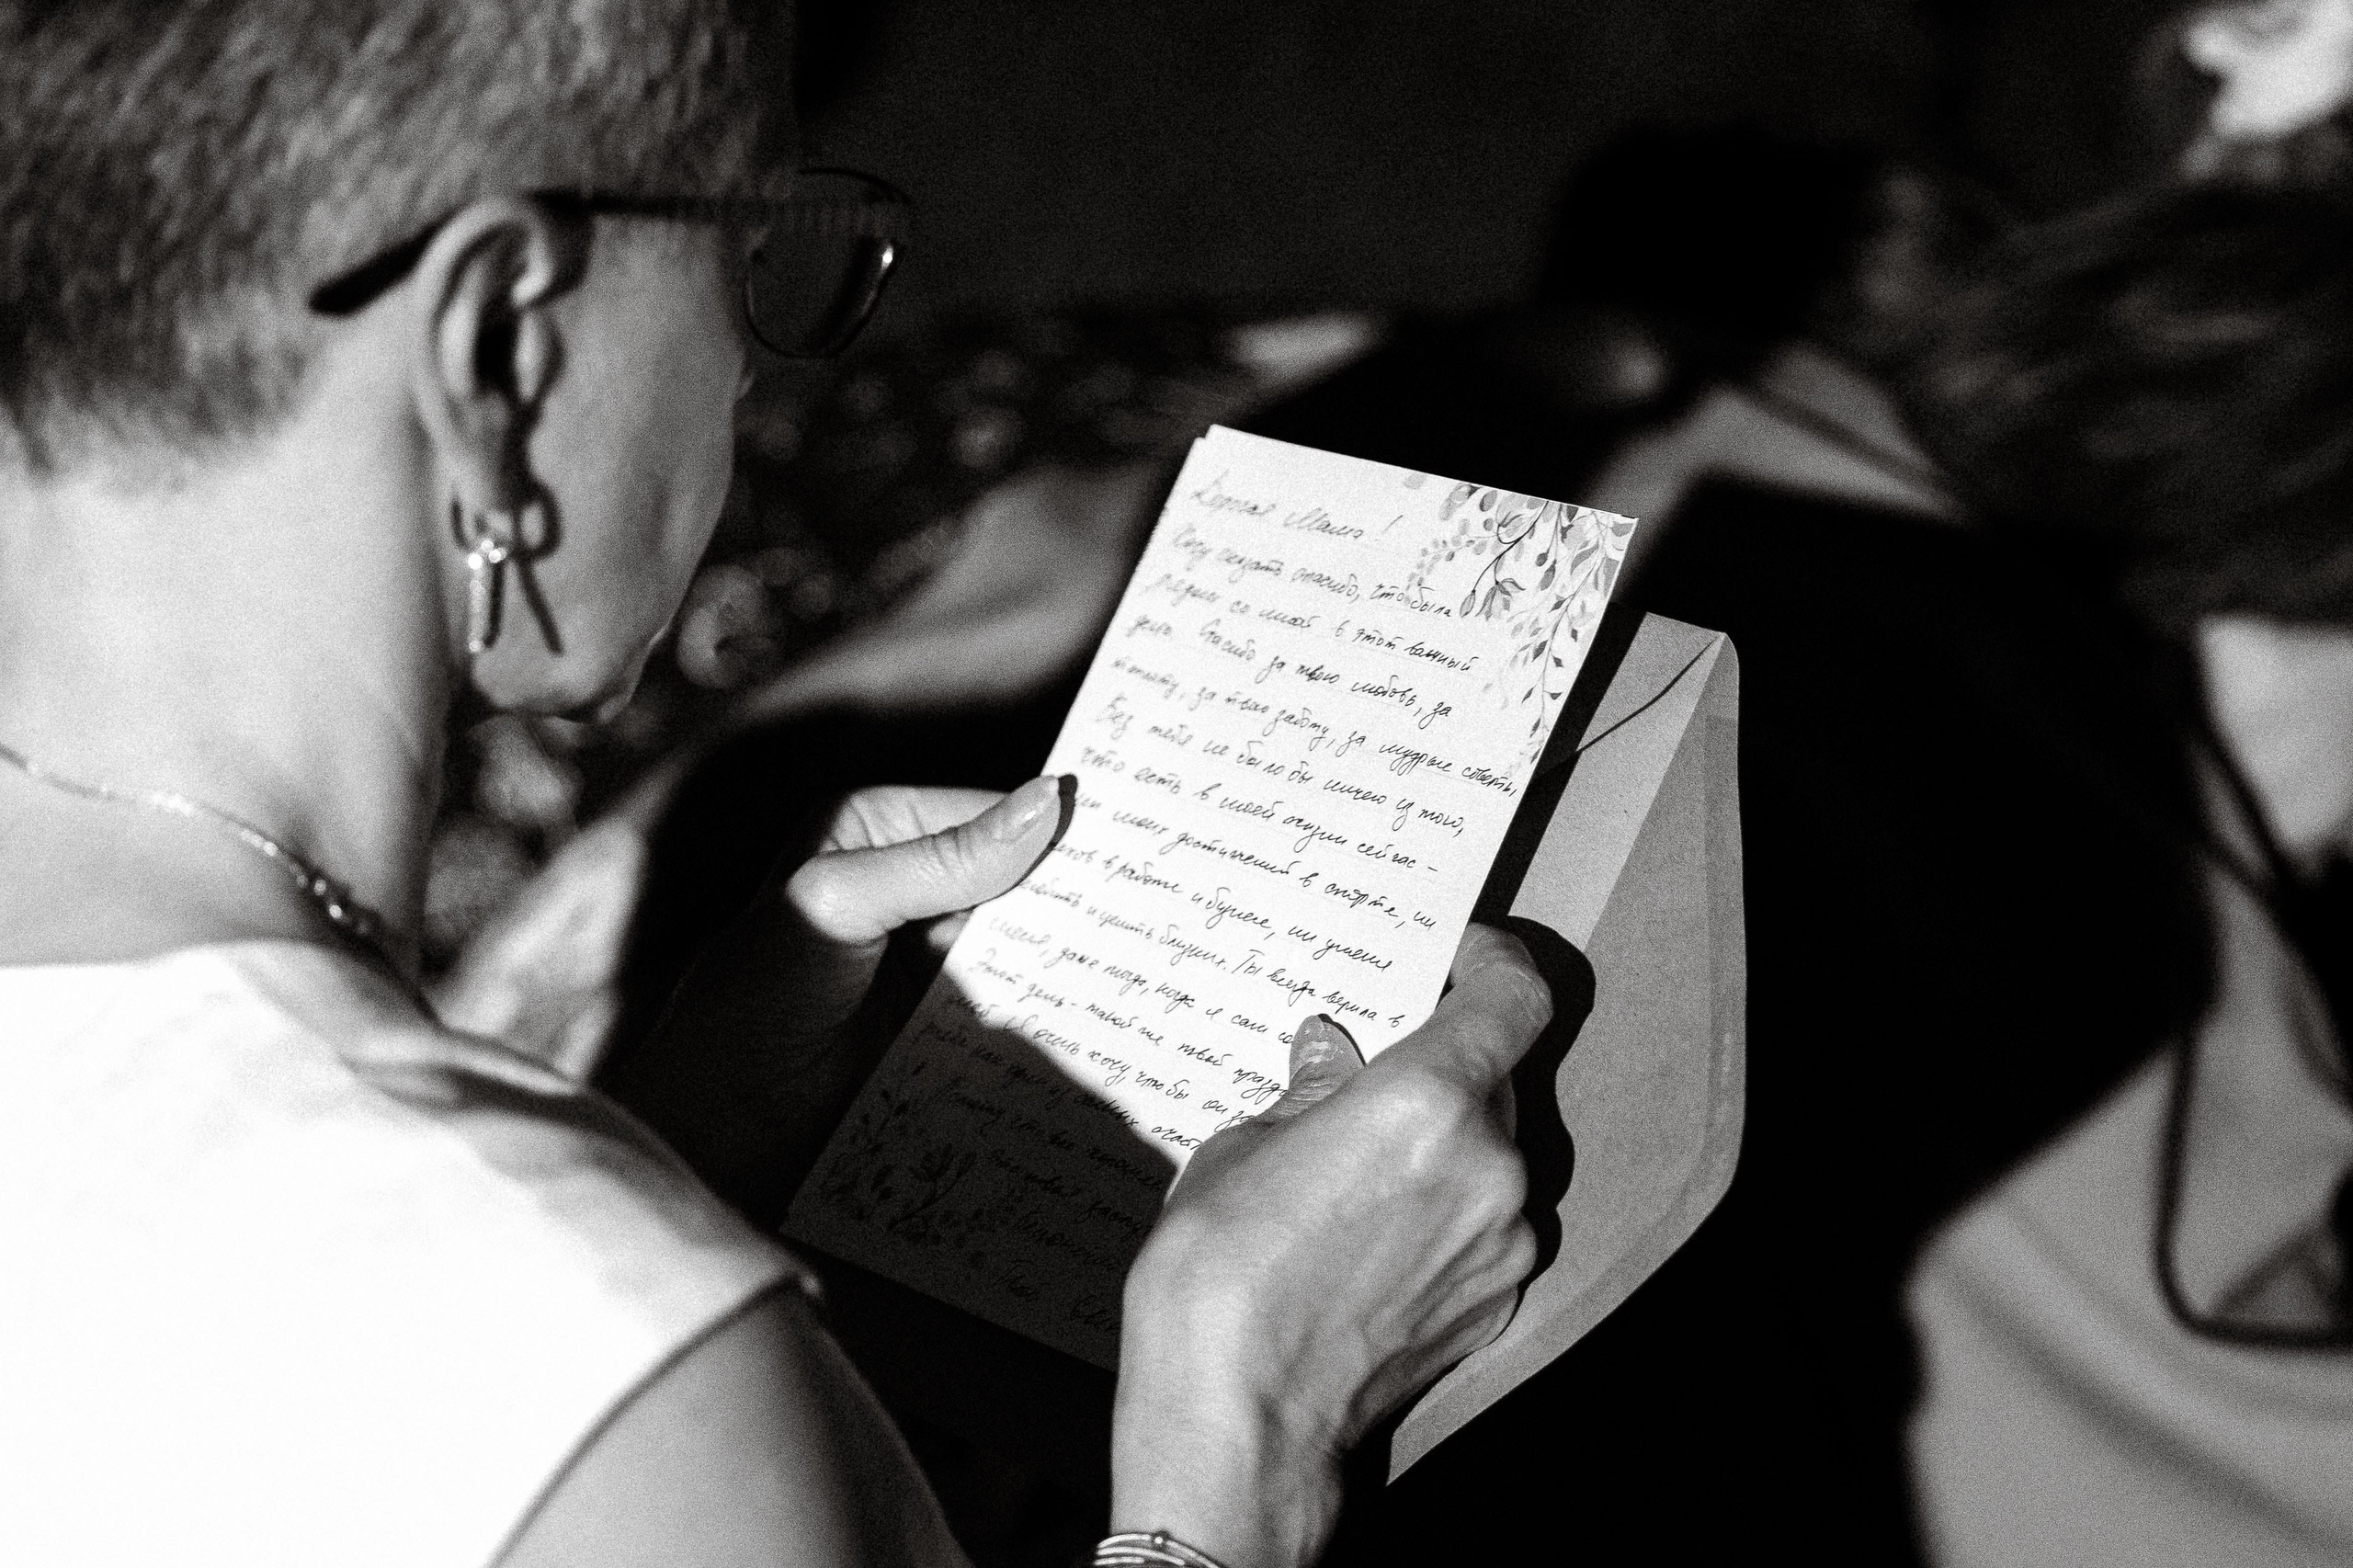 Дорогая Мама!
Хочу сказать спасибо, что была
рядом со мной в этот важный
день. Спасибо за твою любовь, за
теплоту, за твою заботу, за мудрые советы,
Без тебя не было бы ничего из того,
что есть в моей жизни сейчас –
моих достижений в спорте, ни
в работе и бизнесе, ни умения
любить и ценить близких. Ты всегда верила в
меня, даже тогда, когда я сам
Этот день - такой же твой
и я очень хочу, чтобы он
как один из самых